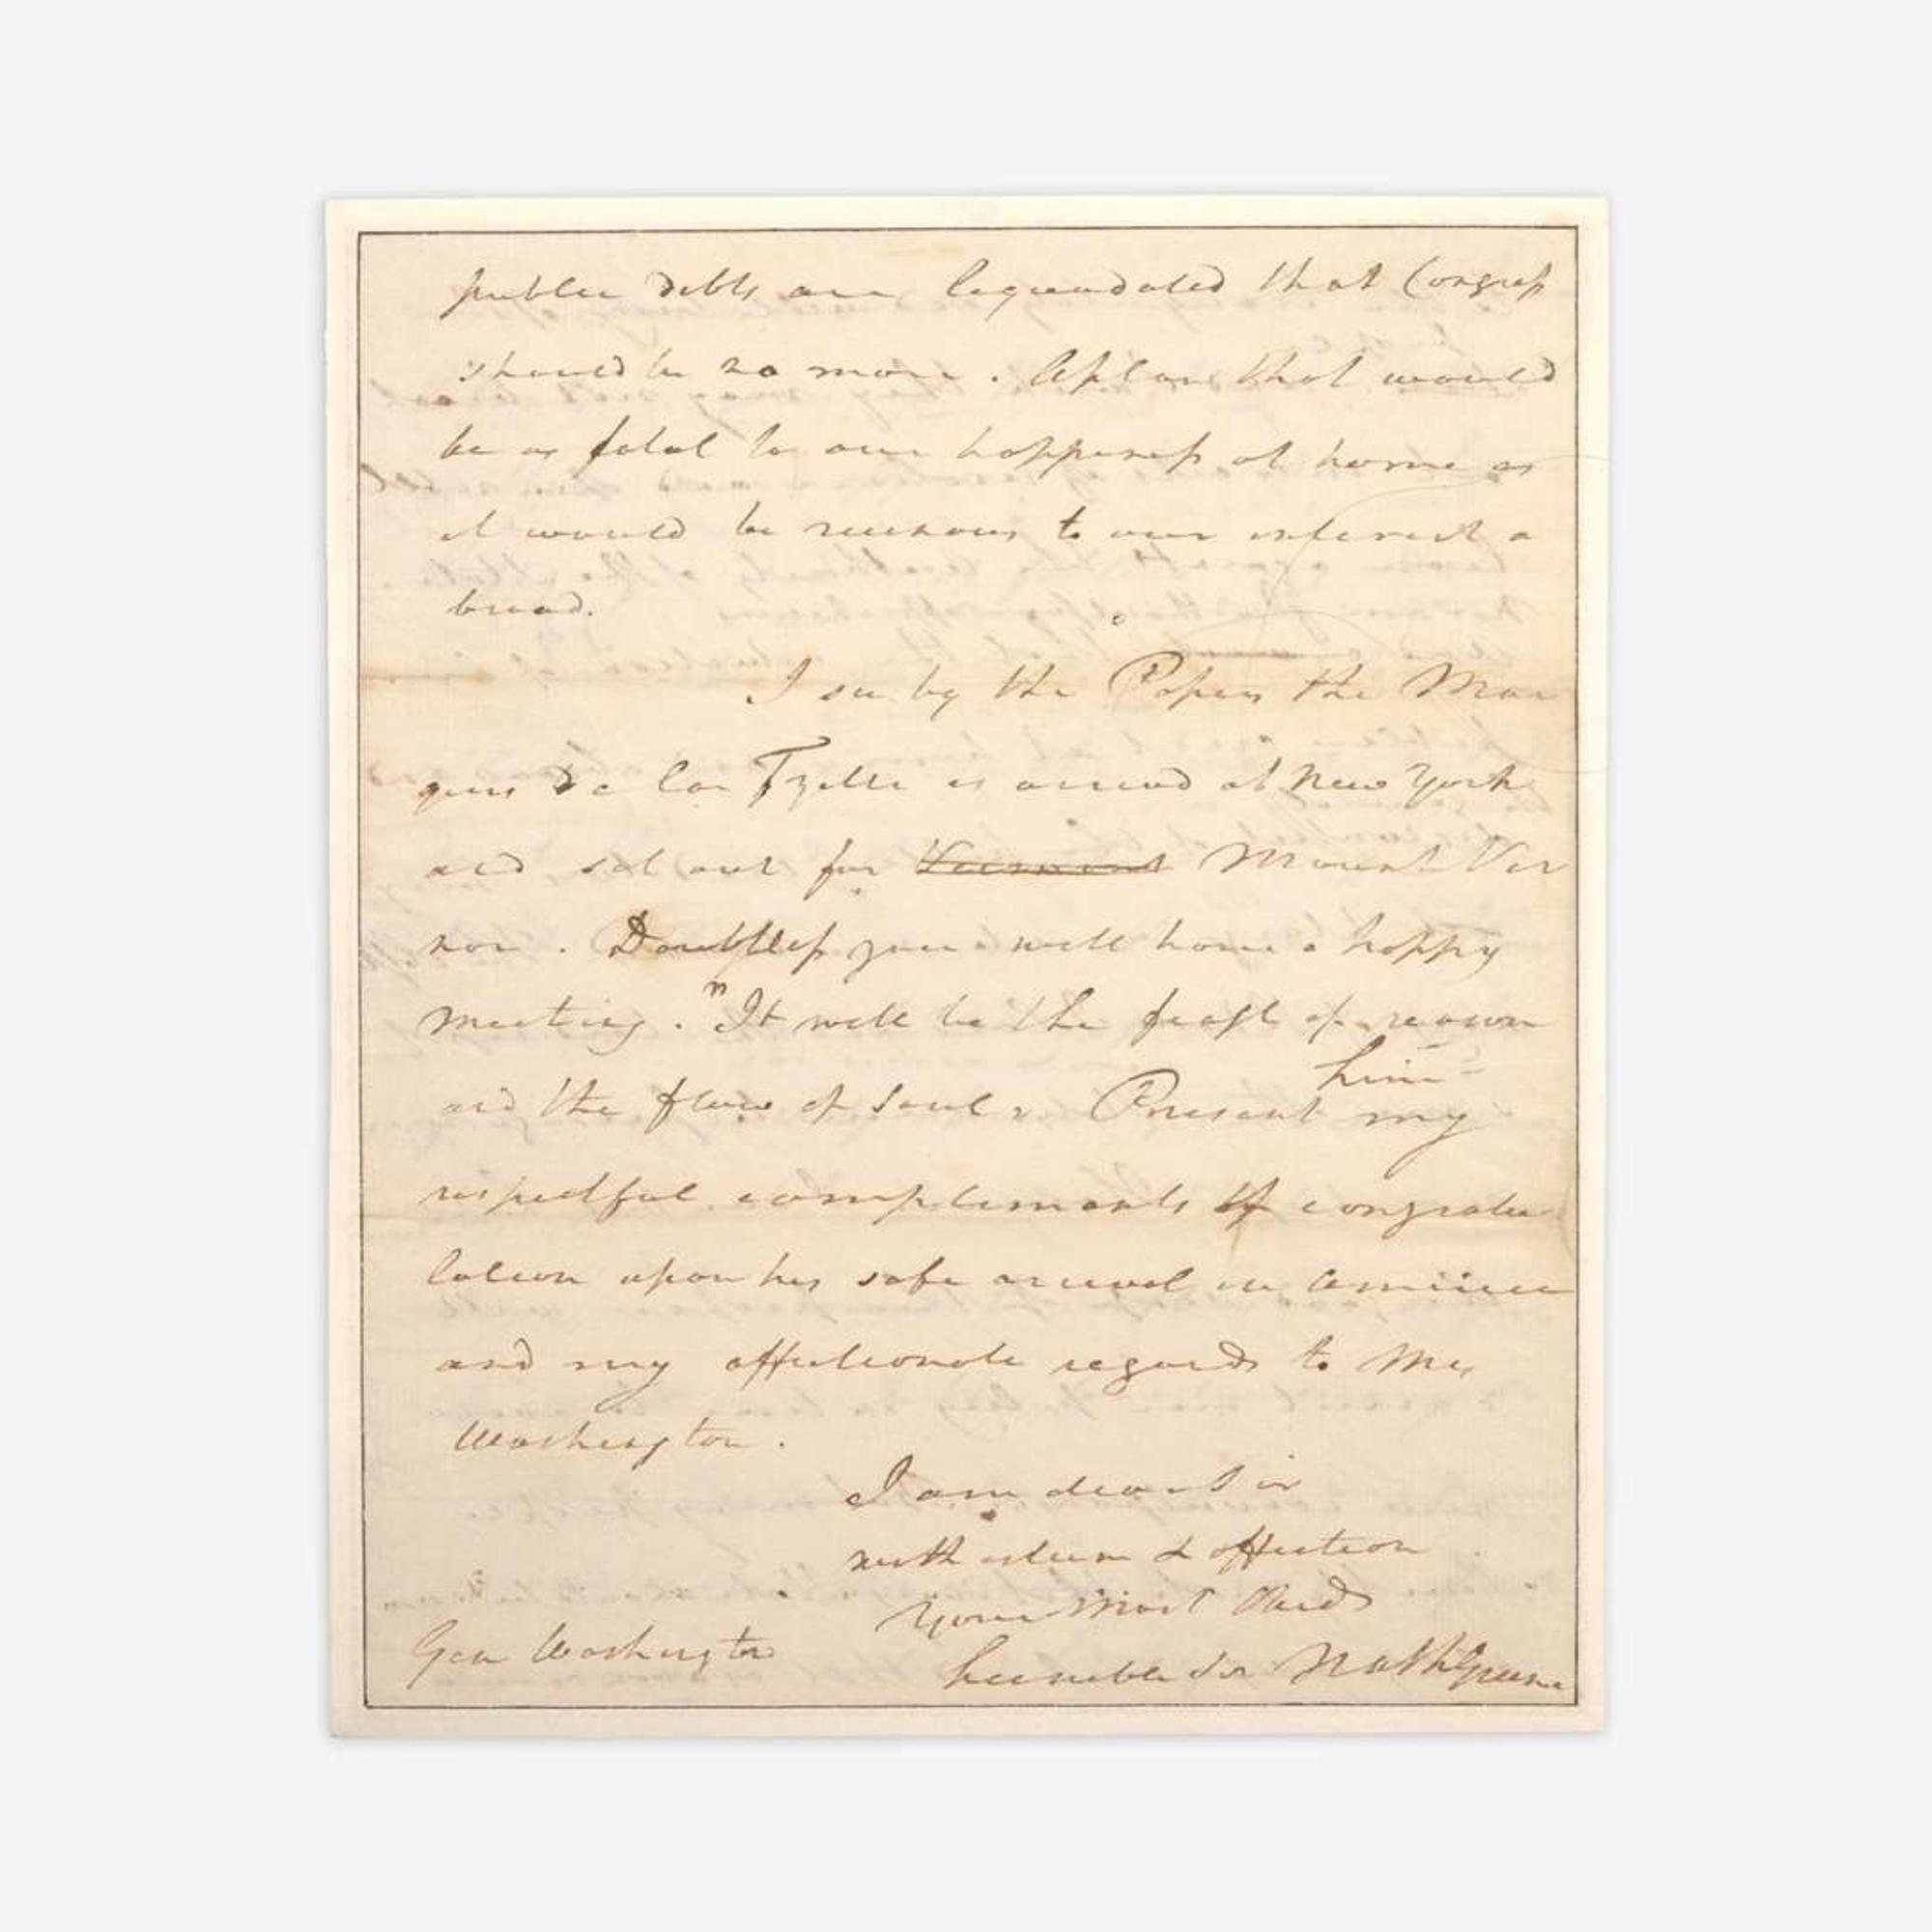 public debts are lequendated that Congress
should be no more. A plan that would
be as fatal to our happiness at home as
it would be ruenous to our interest a
broad.
I see by the Papers the Mar
quis De la Fyette is arived at New York
and set out for Vermont Mount Ver
non. Doubtless you will have a happy
meeting. "It will be the feast of reason
him
and the flow of Soul". Present my
respectful complements of congratu
lation upon his safe arrival in America
and my affectionate regards to Mrs
Washington.
I am dear Sir
with esteem & affection
Your Most Obed
Gen Washington
humble Ser NathGreene